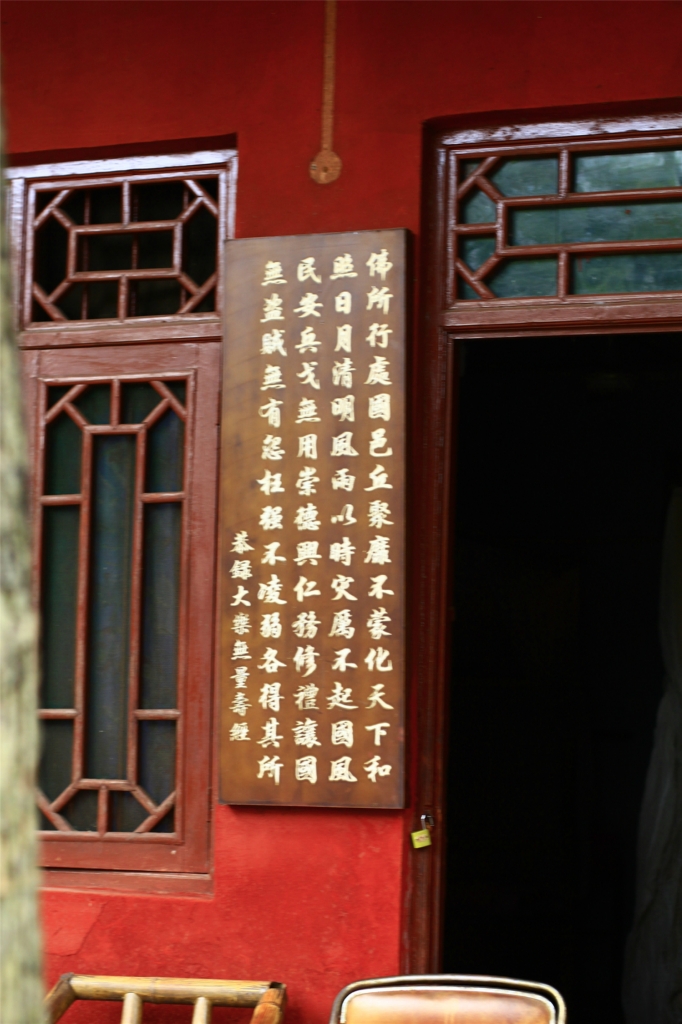 佛所行處國邑丘聚靡不蒙化天下和
熙日月清明風雨以時灾厲不起國風
民安兵戈無用崇德興仁務修禮讓國
無盜賊無有怨枉强不凌弱各得其所
恭錄大乘無量壽經